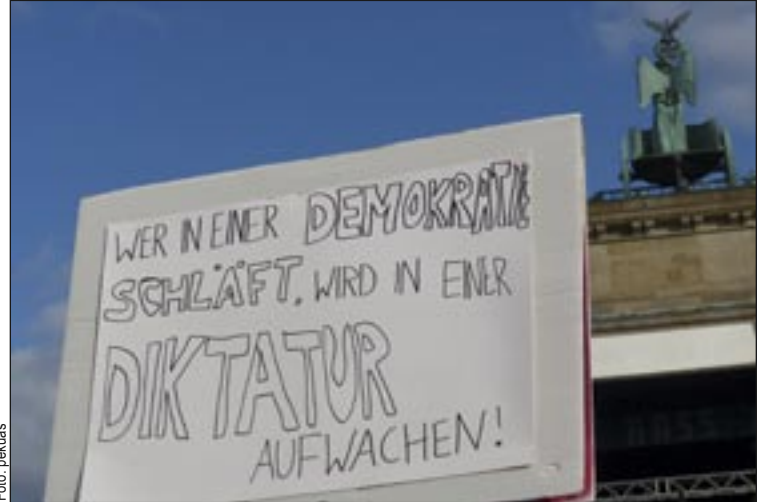 WER IN EINER DEMOKRATIE
SCHLÄFT, WIRD IN EINER
DIKTATUR
AUFWACHEN!
Foto: pekuas